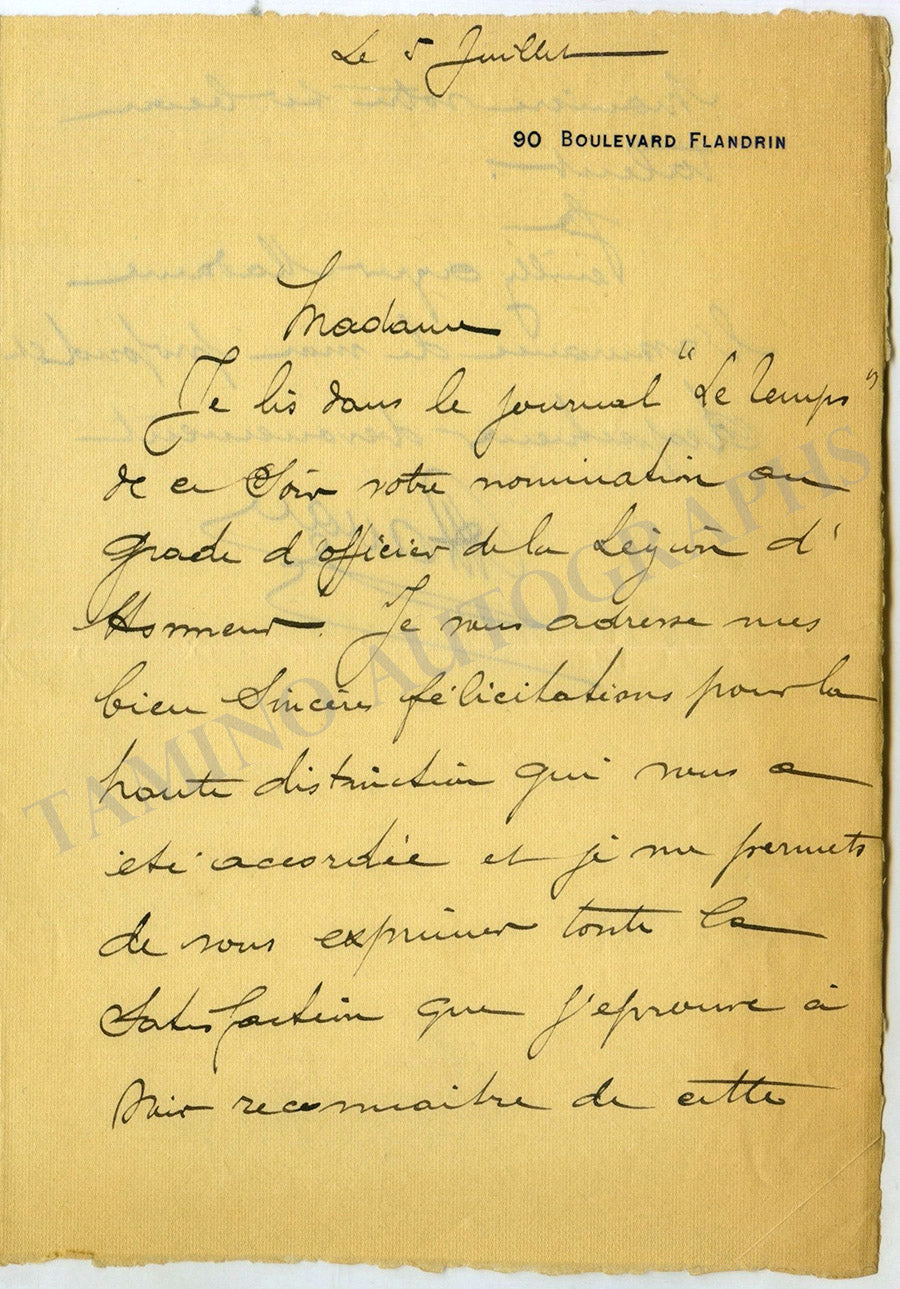 Le 5 Juillet
90 BOULEVARD FLANDRIN
Madame
Je lis dans le journal "Le Temps"
de ce Soir votre nomination au
grade d'officier de la Légion d'
Honneur. Je vous adresse mes
bien Sincères félicitations pour la
haute distinction qui vous a
été accordée et je me permets
de vous exprimer toute la
Satisfaction que j'éprouve à
voir reconnaitre de cette
TAMINO AUTOGRAPHS